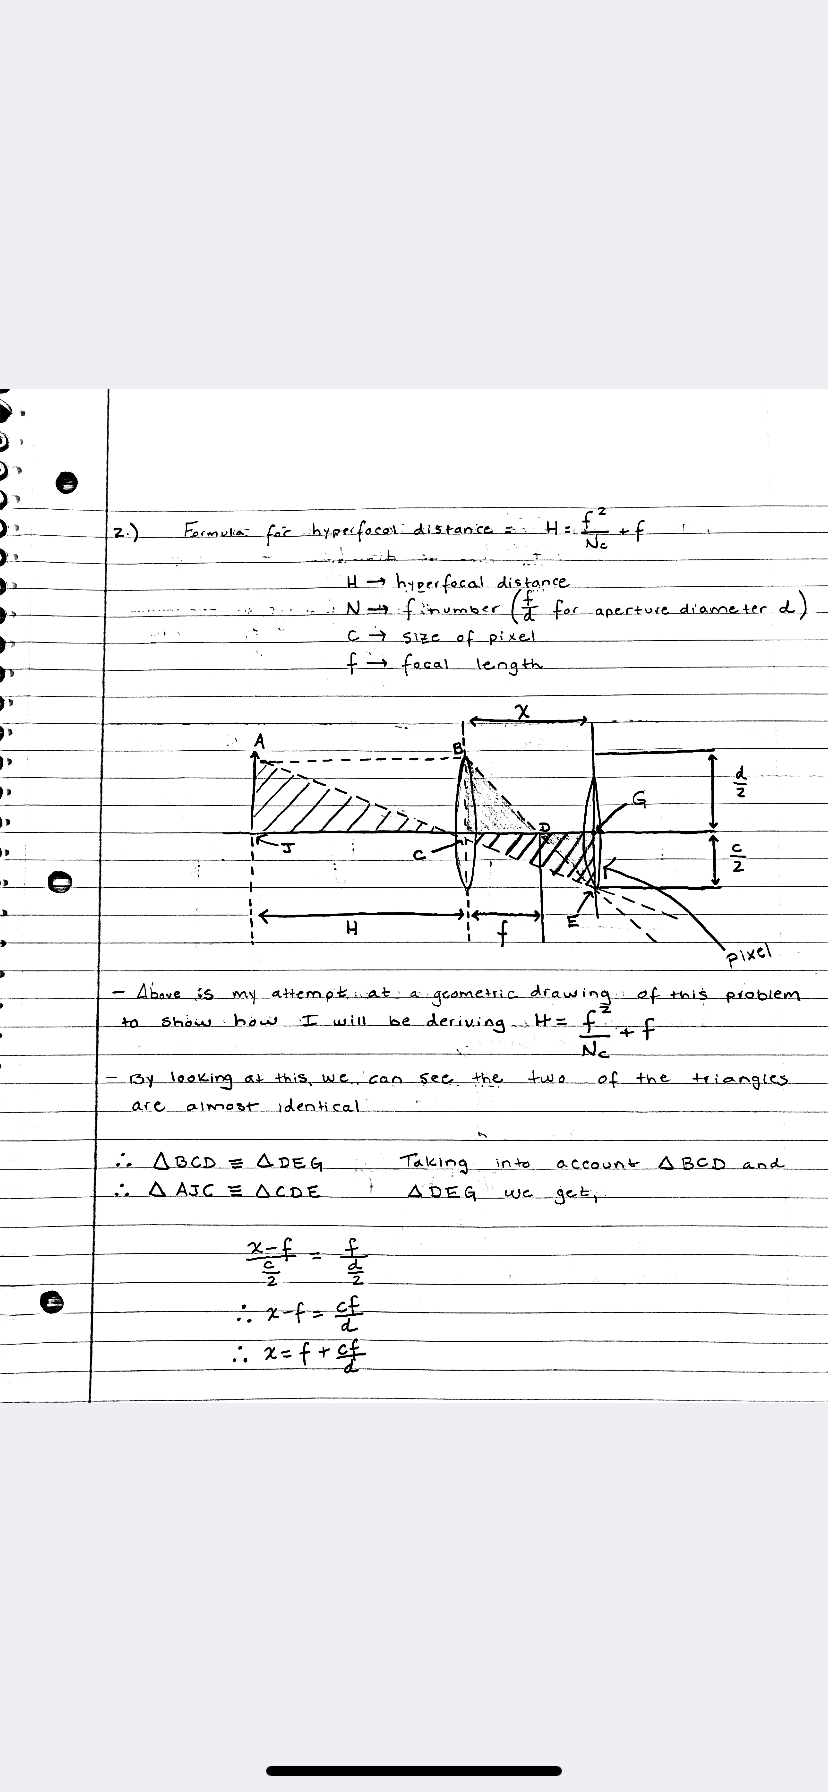 2.) Formula for hyperfocal distance = H = f²/Nc + f
H → hyperfocal distance
N → f number (f/d for aperture diameter d)
C → size of pixel
f → focal length
x
A
B
d/2
G
D
J
C
c/2
H
f
E
pixel
- Above is my attempt at a geometric drawing of this problem
to show how I will be deriving H = f²/Nc + f
- By looking at this, we can see the two of the triangles
are almost identical
∴ △BCD ≡ △DEG Taking into account △BCD and
∴ △AJC ≡ △CDE △DEG we get,
(x-f)/(c/2) = f/(d/2)
∴ x-f = cf/d
∴ x = f + cf/d